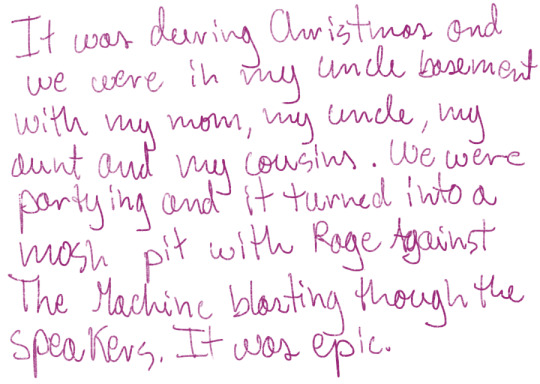 It was during Christmas and
we were in my uncle basement
with my mom, my uncle, my
aunt and my cousins. We were
partying and it turned into a
mosh pit with Rage Against
The Machine blasting though the
speakers. It was epic.